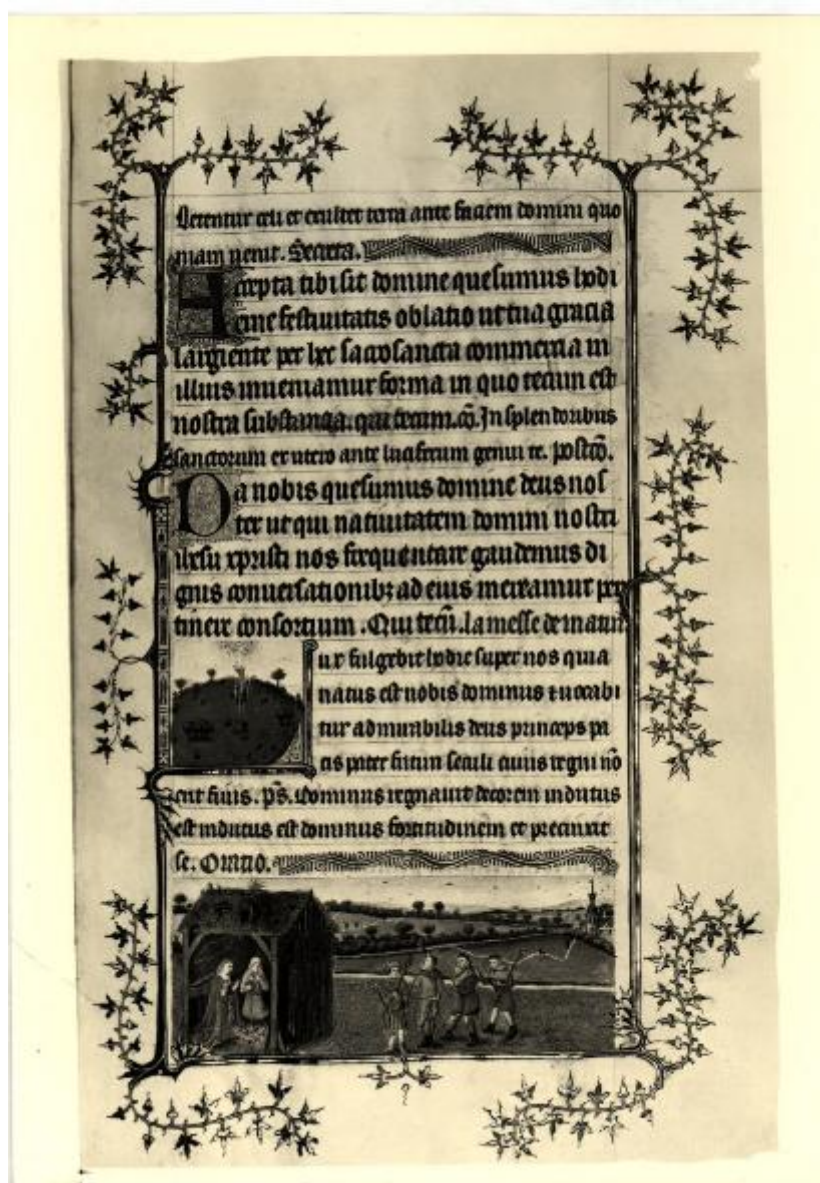 Letentur celi et exultet terra ante faciem domini quo
niam venit. Secreta.
Accepta tibi sit domine quesumus hodi
erne festivitatis oblatio ut tua gracia
largiente per hec sacrosancta commercia in
illius inveniamur forma in quo tecum est
nostra substancia. qui tecum. cō. In splendoribus
sanctorum ex utero ante luciferum genui te. postcō.
Da nobis quesumus domine deus nos
ter ut qui nativitatem domini nostri
ihesu xpristi nos frequentare gaudemus di
gnis conversationibꝫ ad eius mereamur per
tinere consortium. Qui tecū. la messe de matin
ux fulgebit hodie super nos quia
natus est nobis dominus et vocabi
tur admirabilis deus princeps pa
cis pater futuri seculi cuius regni nō
erit finis. p̄s. Dominus regnavit decorem indutus
est indutus est dominus fortitudinem et precinxit
se. Oratio.